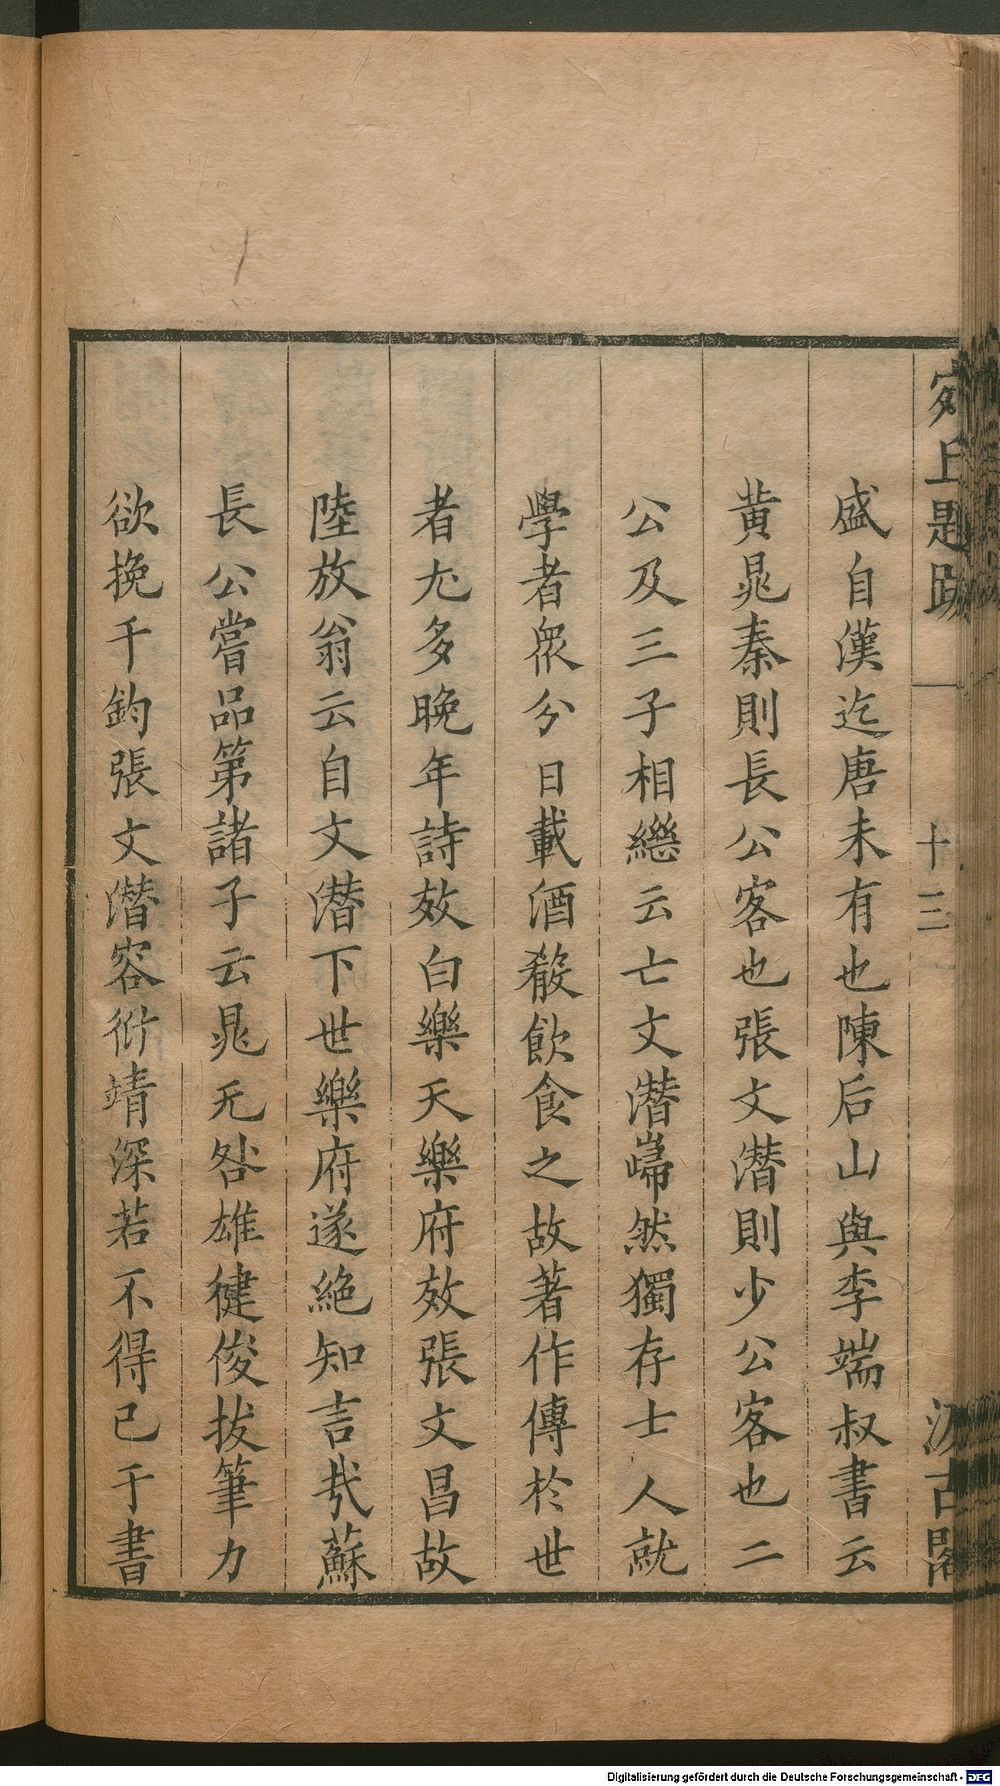 宛丘題跋
十三
汲古閣
盛自漢迄唐未有也陳后山與李端叔書云
黃晁秦則長公客也張文潛則少公客也二
公及三子相繼云亡文潛巋然獨存士人就
學者衆分日載酒殽飲食之故著作傳於世
者尢多晚年詩效白樂天樂府效張文昌故
陸放翁云自文潛下世樂府遂絕知言哉蘇
長公嘗品第諸子云晁无咎雄健俊拔筆力
欲挽千鈞張文潛容衍靖深若不得已于書
Digitalisierung gefördert durch die Deutsche Forschungsgemeinschaft - DFG